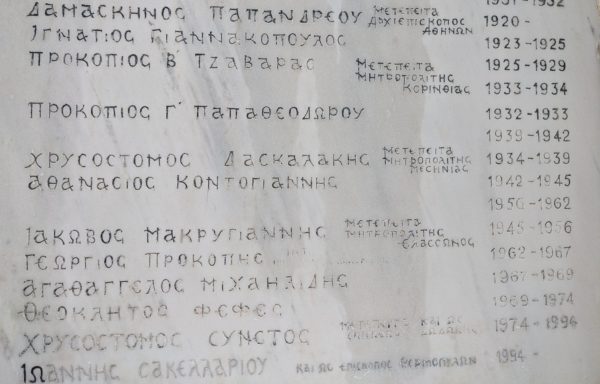 ΔΑΜΑΣΚΗΝΟΣ ΠΑΠΑΝΔΡΕΟΥ ΜΕΤΕΠΕΙΤΑ ΑΡΧΙΕΠΙΣΚΟΠΟΣ ΑΘΗΝΩΝ 1920 -
ΙΓΝΑΤΙΟΣ ΓΙΑΝΝΑΚΟΠΟΥΛΟΣ 1923-1925
ΠΡΟΚΟΠΙΟΣ Β΄ ΤΖΑΒΑΡΑΣ ΜΕΤΕΠΕΙΤΑ ΜΗΤΡΟΠΟΛΙΤΗΣ ΚΟΡΙΝΘΙΑΣ 1925-1929
1933-1934
ΠΡΟΚΟΠΙΟΣ Γ΄ ΠΑΠΑΘΕΟΔΩΡΟΥ 1932-1933
1939-1942
ΧΡΥΣΟΣΤΟΜΟΣ ΔΑΣΚΑΛΑΚΗΣ ΜΕΤΕΠΕΙΤΑ ΜΗΤΡΟΠΟΛΙΤΗΣ ΜΕΣΗΝΙΑΣ 1934-1939
ΑΘΑΝΑΣΙΟΣ ΚΟΝΤΟΓΙΑΝΝΗΣ 1942-1945
1956-1962
ΙΑΚΩΒΟΣ ΜΑΚΡΥΓΙΑΝΝΗΣ ΜΕΤΕΠΕΙΤΑ ΜΗΤΡΟΠΟΛΙΤΗΣ ΕΛΑΣΣΩΝΟΣ 1945-1956
ΓΕΩΡΓΙΟΣ ΠΡΟΚΟΠΗΣ 1962-1967
ΑΓΑΘΑΓΓΕΛΟΣ ΜΙΧΑΗΛΙΔΗΣ 1967-1969
ΘΕΟΚΛΗΤΟΣ ΦΕΦΕΣ 1969-1974
ΧΡΥΣΟΣΤΟΜΟΣ ΣΥΝΕΤΟΣ ΚΑΙ ΩΣ 1974-1994
ΙΩΑΝΝΗΣ ΣΑΚΕΛΛΑΡΙΟΥ ΚΑΙ ΩΣ ΕΠΙΣΚΟΠΟΣ ΘΕΡΜΟΠΥΛΩΝ 1994-